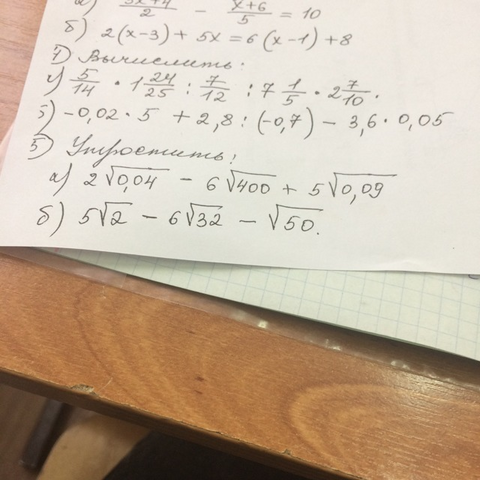 а) (3x+4)/2 - (x+6)/5 = 10
б) 2(x-3) + 5x = 6(x-1) + 8
Вычислить:
5/14 · 1 24/25 : 7/12 : 7 1/5 · 2 7/10.
б) -0,02 · 5 + 2,8 : (-0,7) - 3,6 · 0,05
5) Упростить:
а) 2√0,04 - 6√400 + 5√0,09
б) 5√2 - 6√32 - √50.